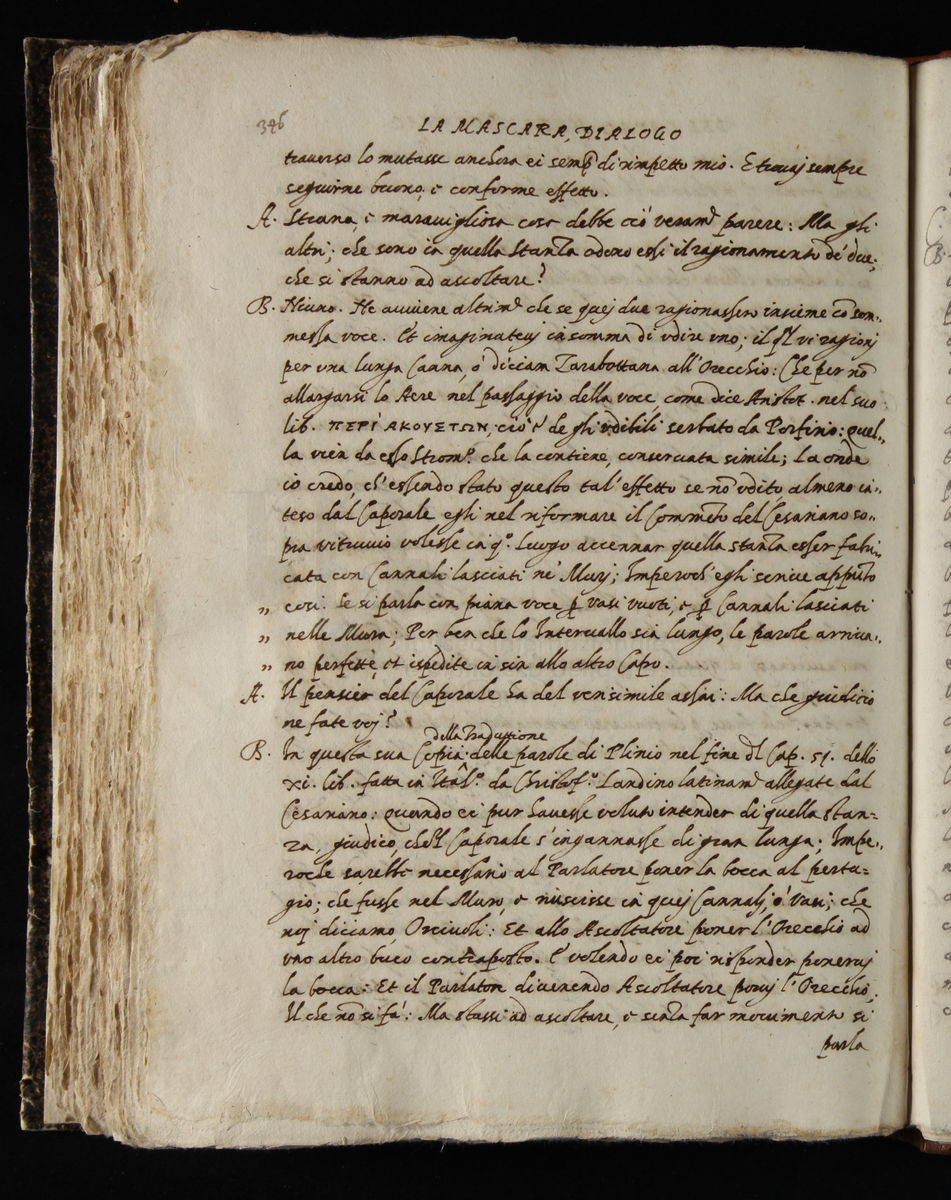 346
LA MASCARA, DIALOGO
traverso lo mutasse anchora ei semp di rimpetto mio. E trovaj sempre
seguirne buono, e conforme effetto.
A. Strana, e maravigliosa cosa debbe ciò veram.e parere: Ma gli
altri; che sono in quella Stanza odono essi il ragionamento de' due,
che si stanno ad ascoltare?
B. Niuno. Ne avviene altrim.e che se quej due ragionassero insieme cõ som-
messa voce. Et imaginatevj in somma di vdire vno; il ql vi ragionj
per vna lunga Canna, o' diciam Zarabottana all'Orecchio: Che per nõ
allargarsi lo Aere nel passaggio della voce, come dice Aristot. nel suo
lib. ΠΕΡΊ ΑΚΟΥΣΤΩΝ, cioè de gli vdibili serbato da Porfirio: Quel-
la vien da esso Strom.o che la contiene, conservata simile; La onde
io credo, ch'essendo stato questo tal'effetto se nõ vdito, almeno in-
teso dal Caporale egli nel riformare il Commẽto del Cesariano so-
pra vitruvio volesse in q.o Luogo accennar quella stanza esser fabri-
cata con Cannali lasciati ne' Murj; Imperoch'egli scrive appũto
„ cosi. Se si parla con piana voce p vasi vuoti, e p Cannali lasciati
„ nelle Mura; Per ben che lo Intervallo sia lungo, le parole arriva-
„ no perfette, et ispedite in sin allo altro Capo.
A. Il pensier del Caporale ha del verisimile assai: Ma che giudicio
ne fate voj?
della Traduttione
B. In questa sua Copia delle parole di Plinio nel fine dl Cap. 51. dello
xi. lib. fatta in Itãl.o da Christof.o Landino latinam.e allegate dal
Cesariano: quando ei pur havesse voluto intender di quella stan-
za, giudico, che'l Caporale s'ingannasse di gran lunga; Impe-
roche sarebbe necessario al Parlatore poner la bocca al pertu-
gio; che fusse nel Muro, e riuscisse in quej Cannalj, o' vasi; che
noj diciamo Orciuoli: Et allo Ascoltatore poner l'Orecchio ad
vno altro buco contraposto. E volendo ei poi risponder ponervj
la bocca: Et il Parlatore divenendo Ascoltatore porvj l'Orecchio.
Il che nõ si fà: Ma stassi ad ascoltare, e senza far movimento si
parla